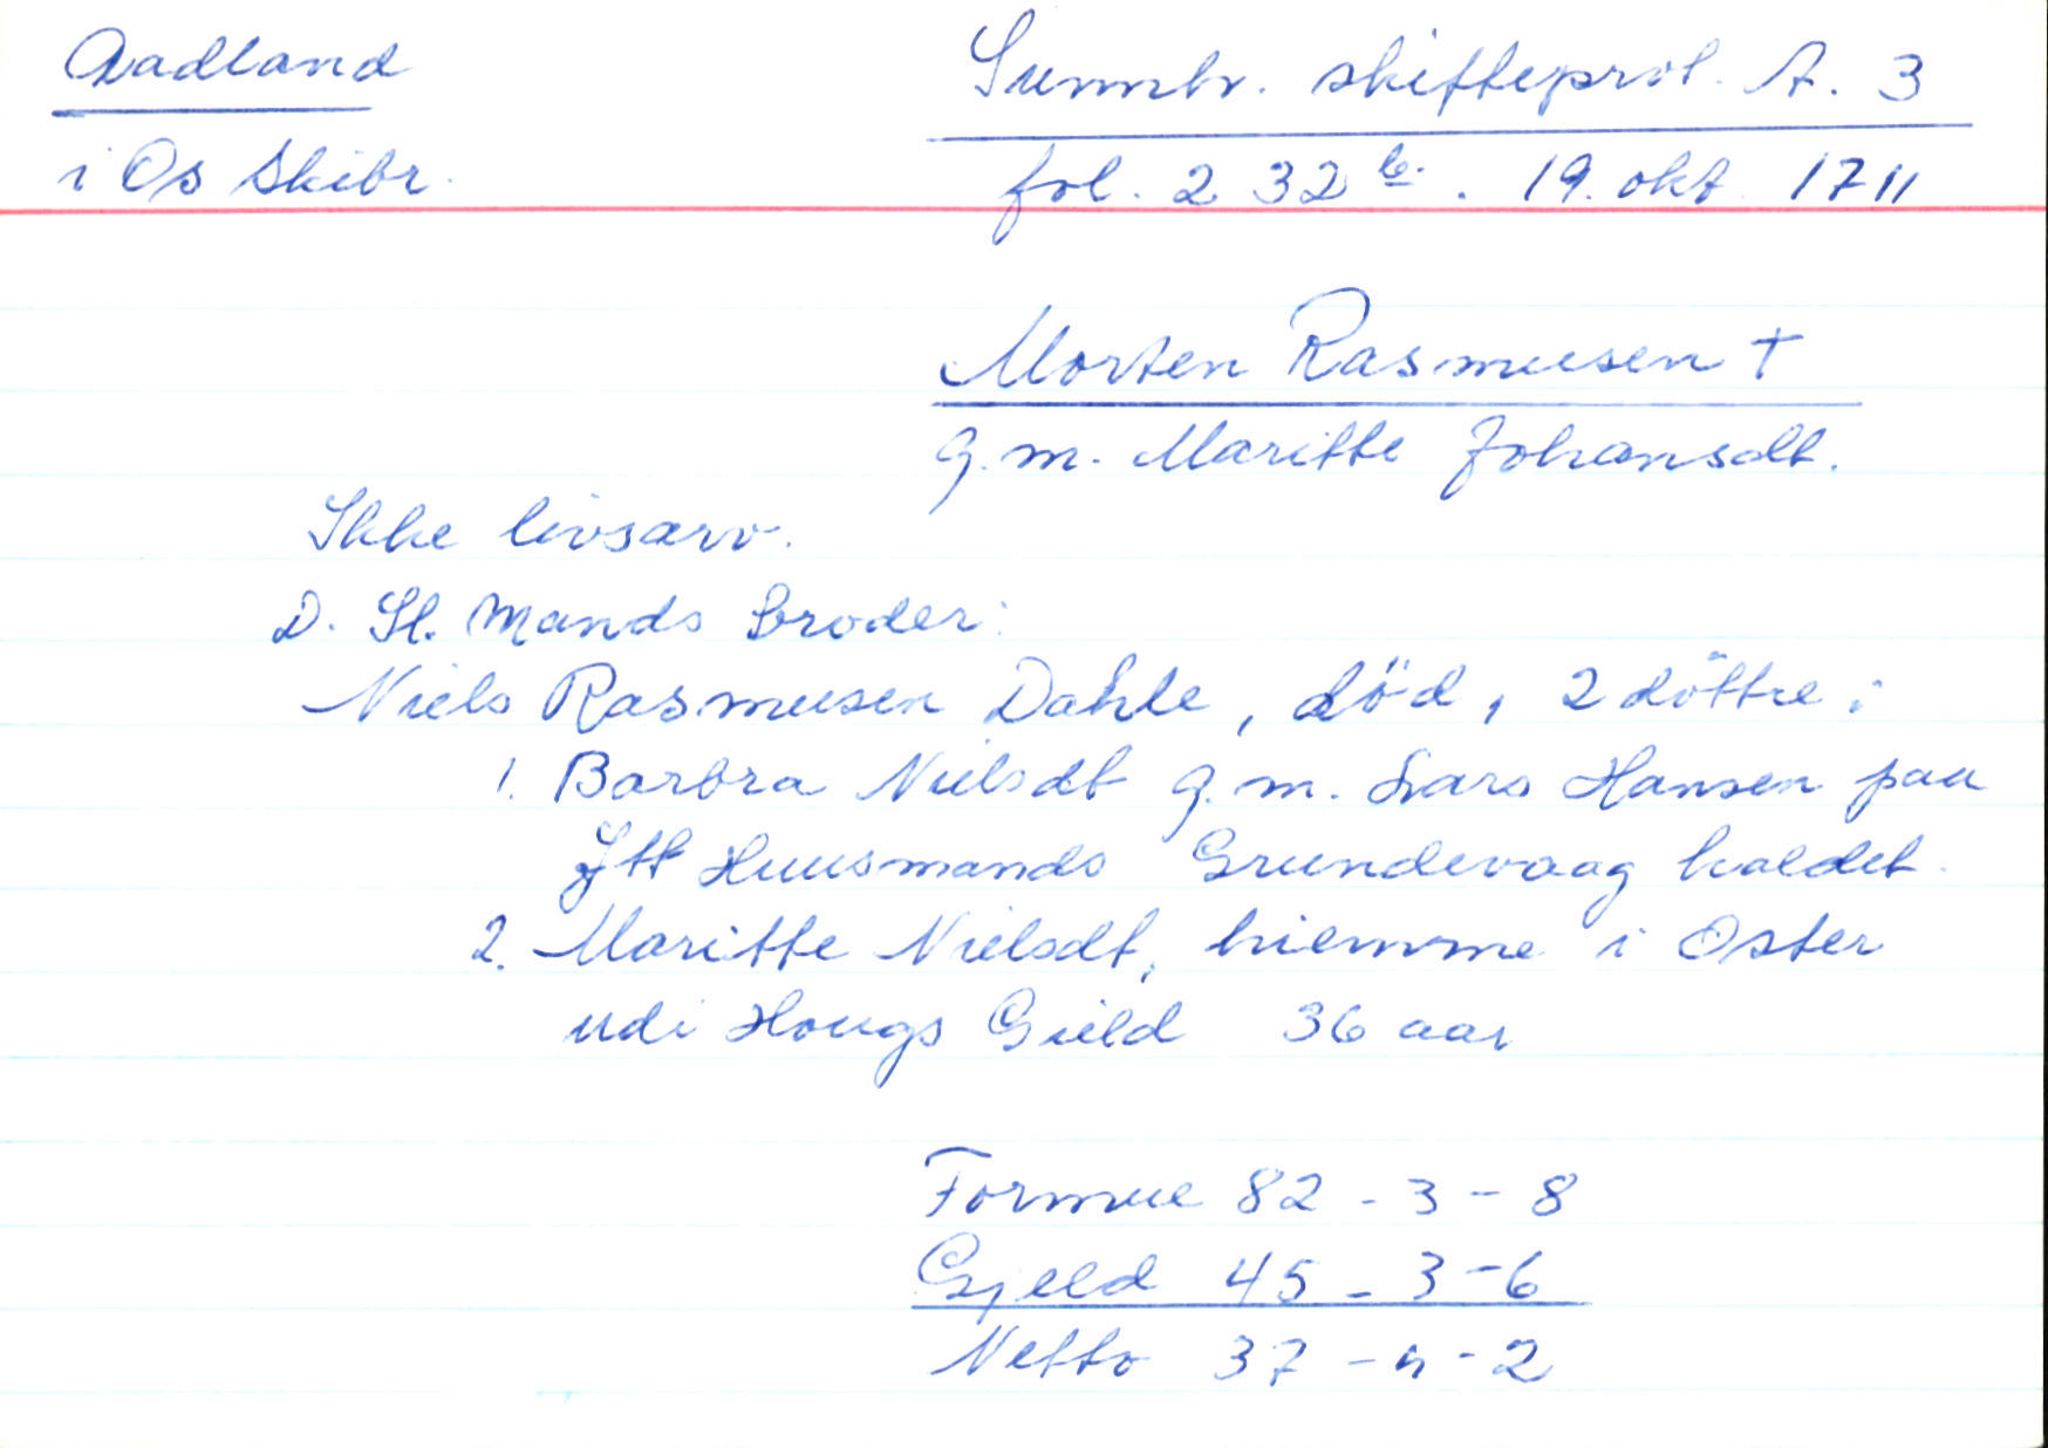 Aadland
i Os Skibr.
Sunnhr. skifteprot. A. 3
fol. 232 b. 19. okt. 1711
Morten Rasmusen †
g. m. Maritte Johansdt.
Ikke livsarv.
D. Sl. Mands broder:
Niels Rasmusen Dahle, död, 2 döttre:
1. Barbra Nielsdt g. m. Lars Hansen paa
Huusmands Grundevaag kaldet.
2. Maritte Nielsdt, hiemme i Oster
udi Hougs Gield 36 aar
Formue 82 - 3 - 8
Gjeld 45 - 3 - 6
Netto 37 - " - 2